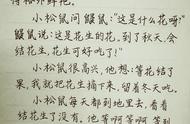 小松鼠问鼹鼠:“这是什么花呀?”
鼹鼠说:“这是花生的花。到了秋天,会
结花生,花生可好吃了!”
小松鼠很高兴,他想:等花结了
果,我就把花生摘下来,留着冬天吃。
小松鼠每天都到地里去,看看
结花生了没有。他等啊等啊,等到